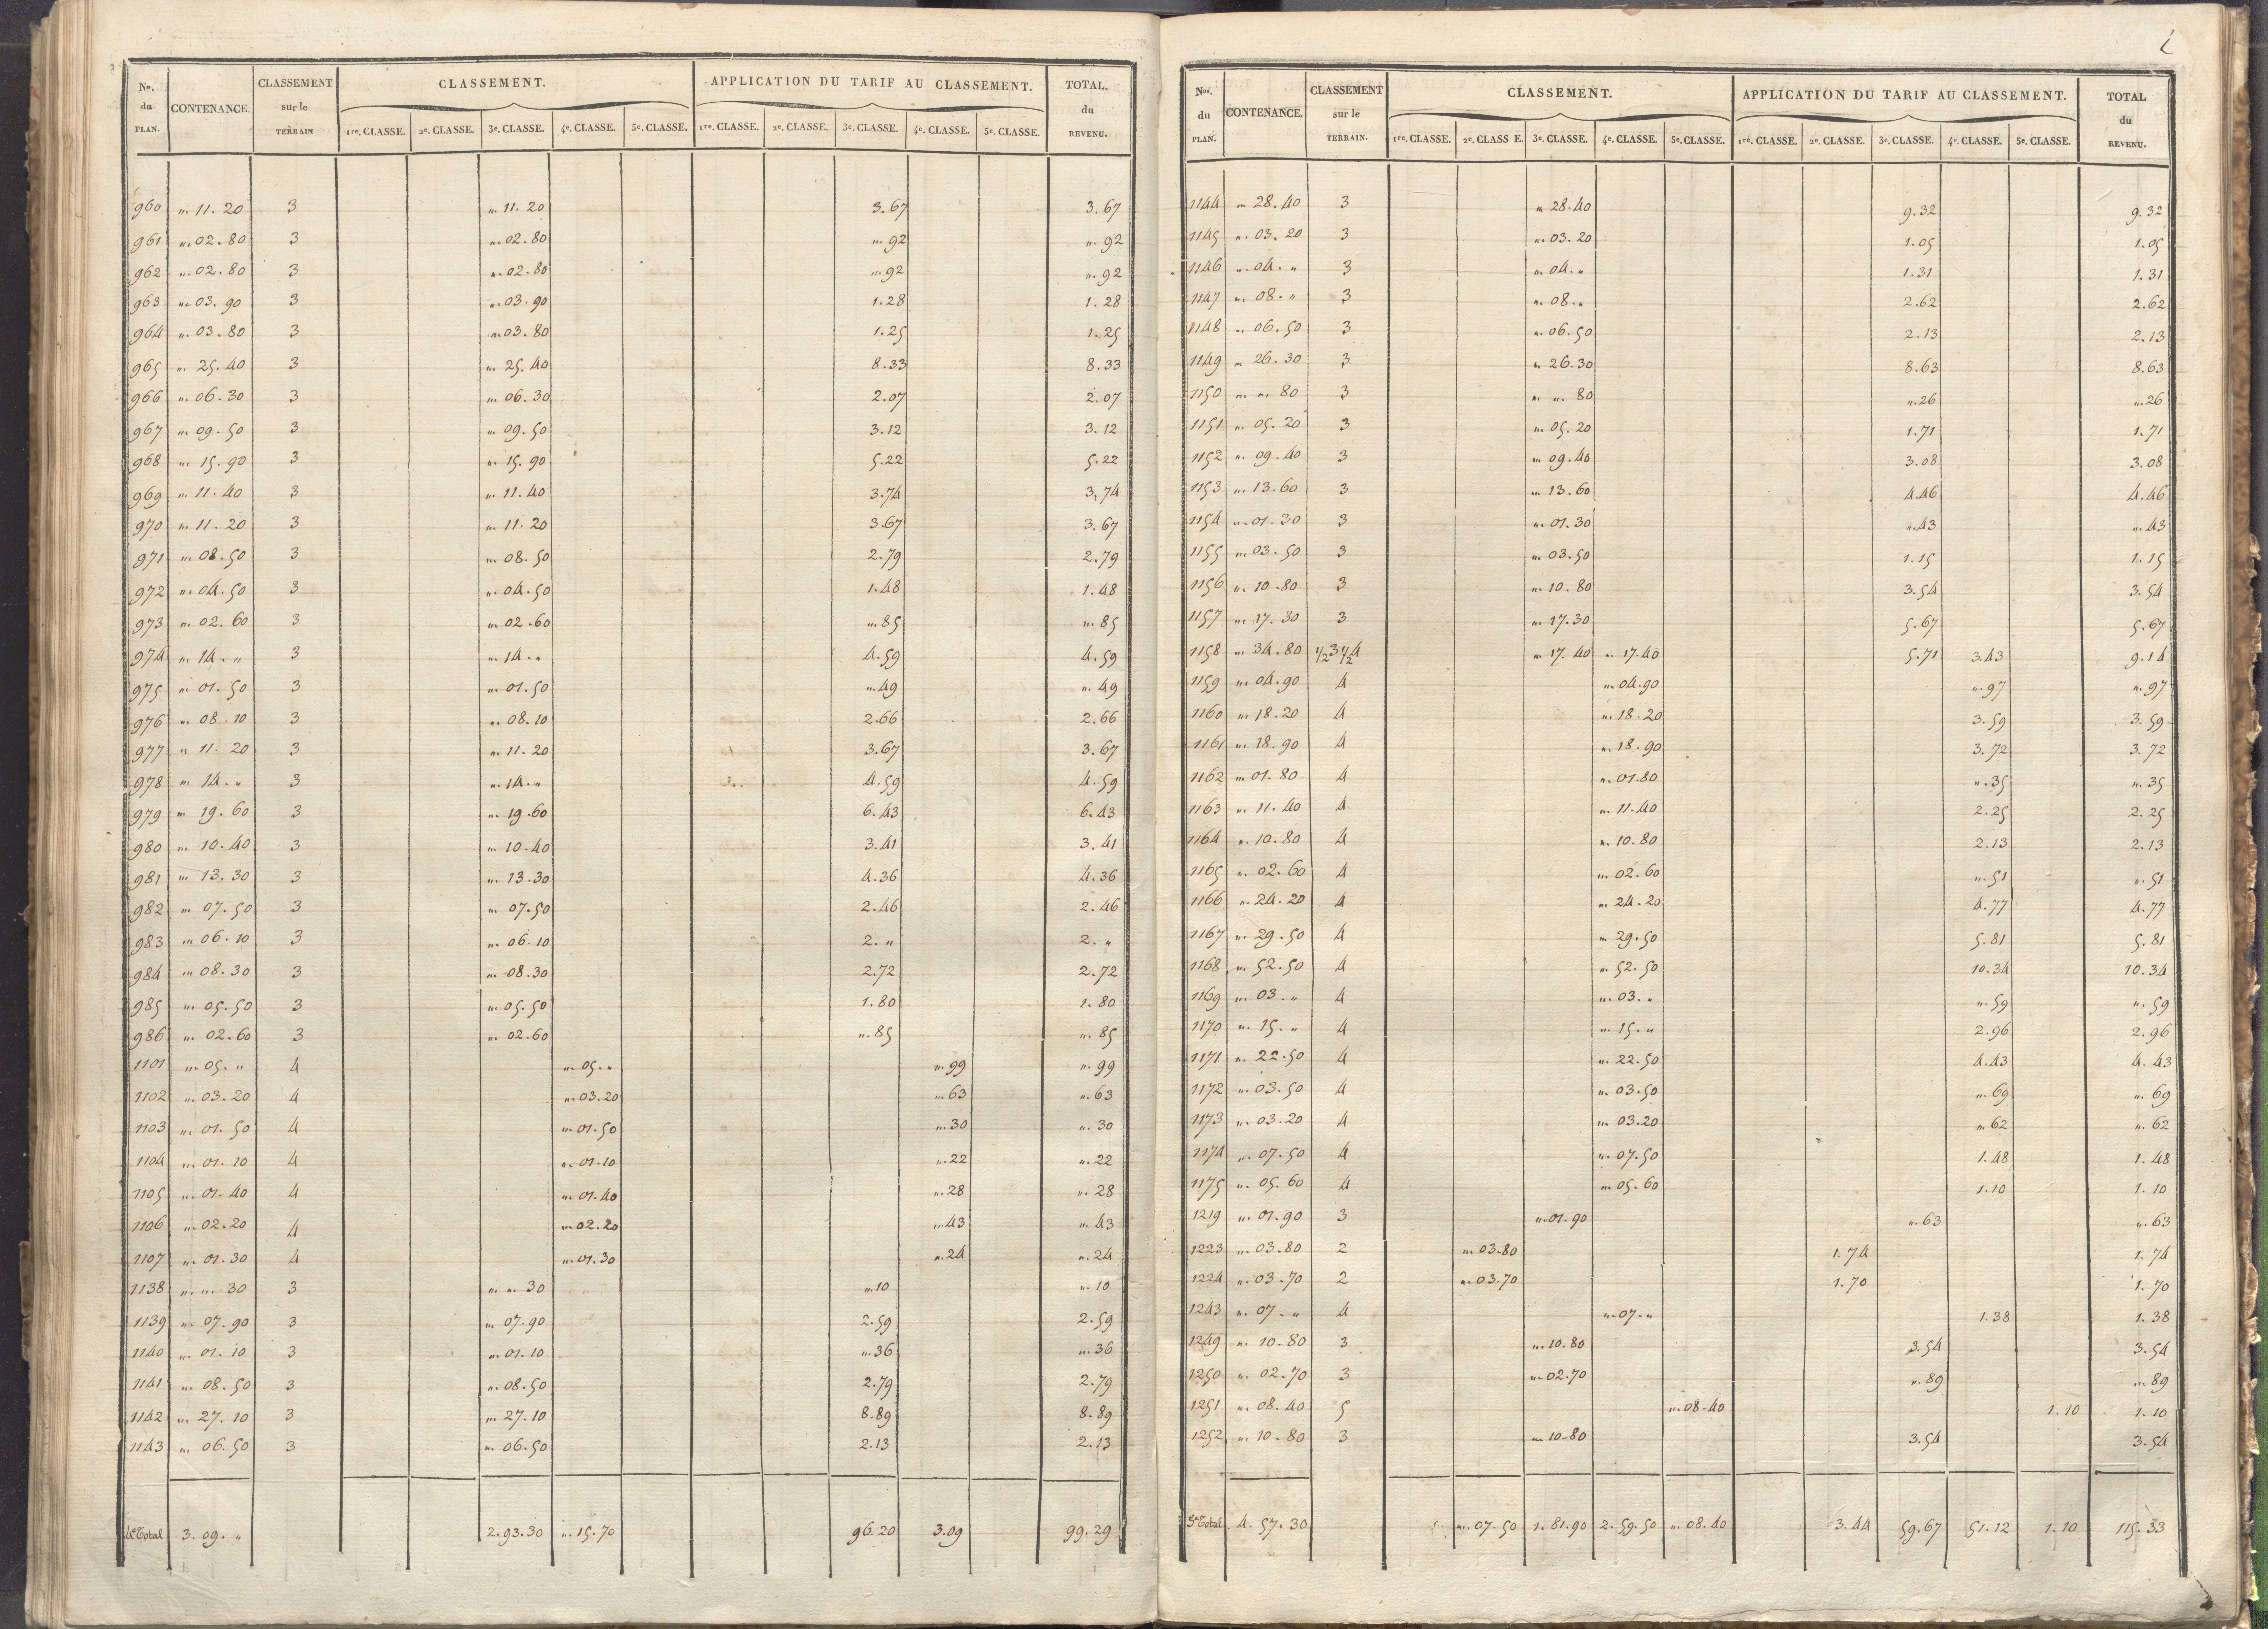 No. du PLAN. CONTENANCE. CLASSEMENT sur le TERRAIN CLASSEMENT. APPLICATION DU TARIF AU CLASSEMENT. TOTAL. du REVENU.
1re. CLASSE. 2e. CLASSE. 3e. CLASSE. 4e. CLASSE. 5e. CLASSE. 1re. CLASSE. 2e. CLASSE. 3e. CLASSE. 4e. CLASSE. 5e. CLASSE.
960 " 11. 20 3 " 11. 20 3.67 3.67
961 " 02.80 3 " 02.80 " 92 " 92
962 " 02.80 3 " 02.80 " 92 " 92
963 " 03.90 3 " 03.90 1.28 1.28
964 " 03.80 3 " 03.80 1.25 1.25
965 " 25.40 3 " 25.40 8.33 8.33
966 " 06.30 3 " 06.30 2.07 2.07
967 " 09.50 3 " 09.50 3.12 3.12
968 " 15.90 3 " 15.90 5.22 5.22
969 " 11.40 3 " 11.40 3.74 3.74
970 " 11.20 3 " 11.20 3.67 3.67
971 " 08.50 3 " 08.50 2.79 2.79
972 " 04.50 3 " 04.50 1.48 1.48
973 " 02.60 3 " 02.60 " 85 " 85
974 " 14. " 3 " 14. " 4.59 4.59
975 " 01.50 3 " 01.50 " 49 " 49
976 " 08.10 3 " 08.10 2.66 2.66
977 " 11.20 3 " 11.20 3.67 3.67
978 " 14. " 3 " 14. " 4.59 4.59
979 " 19.60 3 " 19.60 6.43 6.43
980 " 10.40 3 " 10.40 3.41 3.41
981 " 13.30 3 " 13.30 4.36 4.36
982 " 07.50 3 " 07.50 2.46 2.46
983 " 06.10 3 " 06.10 2. " 2. "
984 " 08.30 3 " 08.30 2.72 2.72
985 " 05.50 3 " 05.50 1.80 1.80
986 " 02.60 3 " 02.60 " 85 " 85
1101 " 05. " 4 " 05. " " 99 " 99
1102 " 03.20 4 " 03.20 " 63 " 63
1103 " 01.50 4 " 01.50 " 30 " 30
1104 " 01.10 4 " 01.10 " 22 " 22
1105 " 01.40 4 " 01.40 " 28 " 28
1106 " 02.20 4 " 02.20 " 43 " 43
1107 " 01.30 4 " 01.30 " 24 " 24
1138 " " 30 3 " " 30 " 10 " 10
1139 " 07.90 3 " 07.90 2.59 2.59
1140 " 01.10 3 " 01.10 " 36 " 36
1141 " 08.50 3 " 08.50 2.79 2.79
1142 " 27.10 3 " 27.10 8.89 8.89
1143 " 06.50 3 " 06.50 2.13 2.13
4e Total 3.09. " 2.93.30 " 15.70 96.20 3.09 99.29
Nos. du PLAN. CONTENANCE. CLASSEMENT sur le TERRAIN. CLASSEMENT. APPLICATION DU TARIF AU CLASSEMENT. TOTAL du REVENU.
1re. CLASSE. 2e. CLASS E. 3e. CLASSE. 4e. CLASSE. 5e. CLASSE. 1re. CLASSE. 2e. CLASSE. 3e. CLASSE. 4e. CLASSE. 5e. CLASSE.
1144 " 28.40 3 " 28.40 9.32 9.32
1145 " 03.20 3 " 03.20 1.05 1.05
1146 " 04. " 3 " 04. " 1.31 1.31
1147 " 08. " 3 " 08. " 2.62 2.62
1148 " 06.50 3 " 06.50 2.13 2.13
1149 " 26.30 3 " 26.30 8.63 8.63
1150 " " 80 3 " " 80 " 26 " 26
1151 " 05.20 3 " 05.20 1.71 1.71
1152 " 09.40 3 " 09.40 3.08 3.08
1153 " 13.60 3 " 13.60 4.46 4.46
1154 " 01.30 3 " 01.30 " 43 " 43
1155 " 03.50 3 " 03.50 1.15 1.15
1156 " 10.80 3 " 10.80 3.54 3.54
1157 " 17.30 3 " 17.30 5.67 5.67
1158 " 34.80 1/2 3 1/2 4 " 17.40 " 17.40 5.71 3.43 9.14
1159 " 04.90 4 " 04.90 " 97 " 97
1160 " 18.20 4 " 18.20 3.59 3.59
1161 " 18.90 4 " 18.90 3.72 3.72
1162 " 01.80 4 " 01.80 " 35 " 35
1163 " 11.40 4 " 11.40 2.25 2.25
1164 " 10.80 4 " 10.80 2.13 2.13
1165 " 02.60 4 " 02.60 " 51 " 51
1166 " 24.20 4 " 24.20 4.77 4.77
1167 " 29.50 4 " 29.50 5.81 5.81
1168 " 52.50 4 " 52.50 10.34 10.34
1169 " 03. " 4 " 03. " " 59 " 59
1170 " 15. " 4 " 15. " 2.96 2.96
1171 " 22.50 4 " 22.50 4.43 4.43
1172 " 03.50 4 " 03.50 " 69 " 69
1173 " 03.20 4 " 03.20 " 62 " 62
1174 " 07.50 4 " 07.50 1.48 1.48
1175 " 05.60 4 " 05.60 1.10 1.10
1219 " 01.90 3 " 01.90 " 63 " 63
1223 " 03.80 2 " 03.80 1.74 1.74
1224 " 03.70 2 " 03.70 1.70 1.70
1243 " 07. " 4 " 07. " 1.38 1.38
1249 " 10.80 3 " 10.80 3.54 3.54
1250 " 02.70 3 " 02.70 " 89 " 89
1251 " 08.40 5 " 08.40 1.10 1.10
1252 " 10.80 3 " 10.80 3.54 3.54
5e Total 4.57.30 " 07.50 1.81.90 2.59.50 " 08.40 3.44 59.67 51.12 1.10 115.33